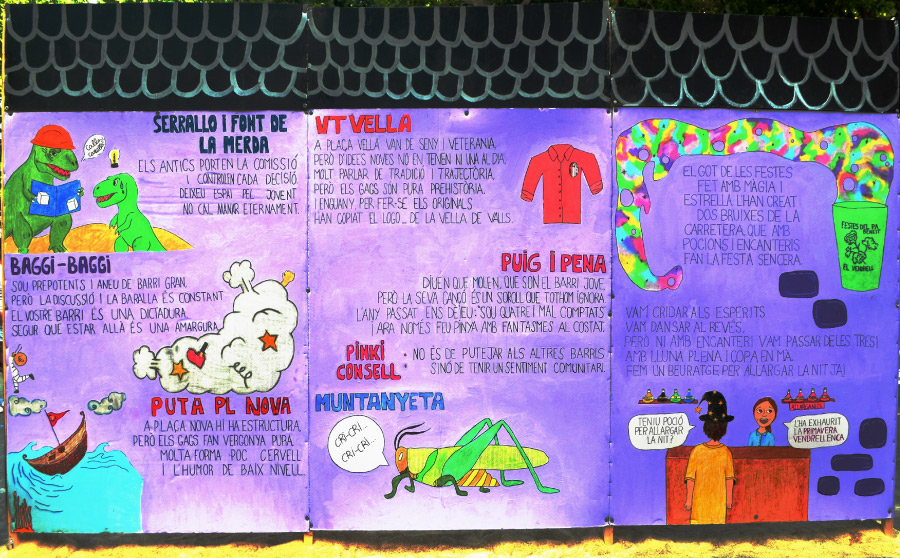 SERRALLO I FONT DE
LA MERDA
Calleu
ELS ANTICS PORTEN LA COMISSIÓ
I CONTROLEN CADA DECISIÓ.
DEIXEU ESPAI PEL JOVENT
NO CAL MANAR ETERNAMENT.
BAGGI-BAGGI
SOU PREPOTENTS I ANEU DE BARRI GRAN,
PERÒ LA DISCUSSIÓ I LA BARALLA ÉS CONSTANT
EL VOSTRE BARRI ÉS UNA DICTADURA,
SEGUR QUE ESTAR ALLÀ ÉS UNA AMARGURA.
PUTA PL NOVA
A PLAÇA NOVA HI HA ESTRUCTURA,
PERÒ ELS GAGS FAN VERGONYA PURA.
MOLTA FORMA POC CERVELL
I L'HUMOR DE BAIX NIVELL.
VT VELLA
A PLAÇA VELLA VAN DE SENY I VETERANIA,
PERÒ D'IDEES NOVES NO EN TENEN NI UNA AL DIA.
MOLT PARLAR DE TRADICIÓ I TRAJECTÒRIA,
PERÒ ELS GAGS SÓN PURA PREHISTÒRIA.
I ENGUANY, PER FER-SE ELS ORIGINALS
HAN COPIAT EL LOGO... DE LA VELLA DE VALLS.
PUIG I PENA
DIUEN QUE MOLEN, QUE SON EL BARRI JOVE,
PERÒ LA SEVA CANÇÓ ÉS UN SOROLL QUE TOTHOM IGNORA
L'ANY PASSAT ENS DÈIEU: "SOU QUATRE I MAL COMPTATS"
I ARA NOMÉS FEU PINYA AMB FANTASMES AL COSTAT.
PINKI
CONSELL
· NO ÉS DE PUTEJAR ALS ALTRES BARRIS
SINÓ DE TENIR UN SENTIMENT COMUNITARI.
MUNTANYETA
CRI-CRI...
CRI-CRI...
CRI-CRI...
EL GOT DE LES FESTES
FET AMB MÀGIA I
ESTRELLA, L'HAN CREAT
DOS BRUIXES DE LA
CARRETERA, QUE AMB
POCIONS I ENCANTERIS
FAN LA FESTA SENCERA.
FESTES DEL PA
BENEIT
EL VENDRELL
VAM CRIDAR ALS ESPERITS
VAM DANSAR AL REVÉS,
PERÒ NI AMB ENCANTERI VAM PASSAR DE LES TRES!
AMB LLUNA PLENA I COPA EN MÀ.
FEM UN BEURATGE PER ALLARGAR LA NIT JA!
TENIU POCIÓ
PER ALLARGAR
LA NIT?
L'HA EXHAURIT
LA PRIMAVERA
VENDRELLENCA